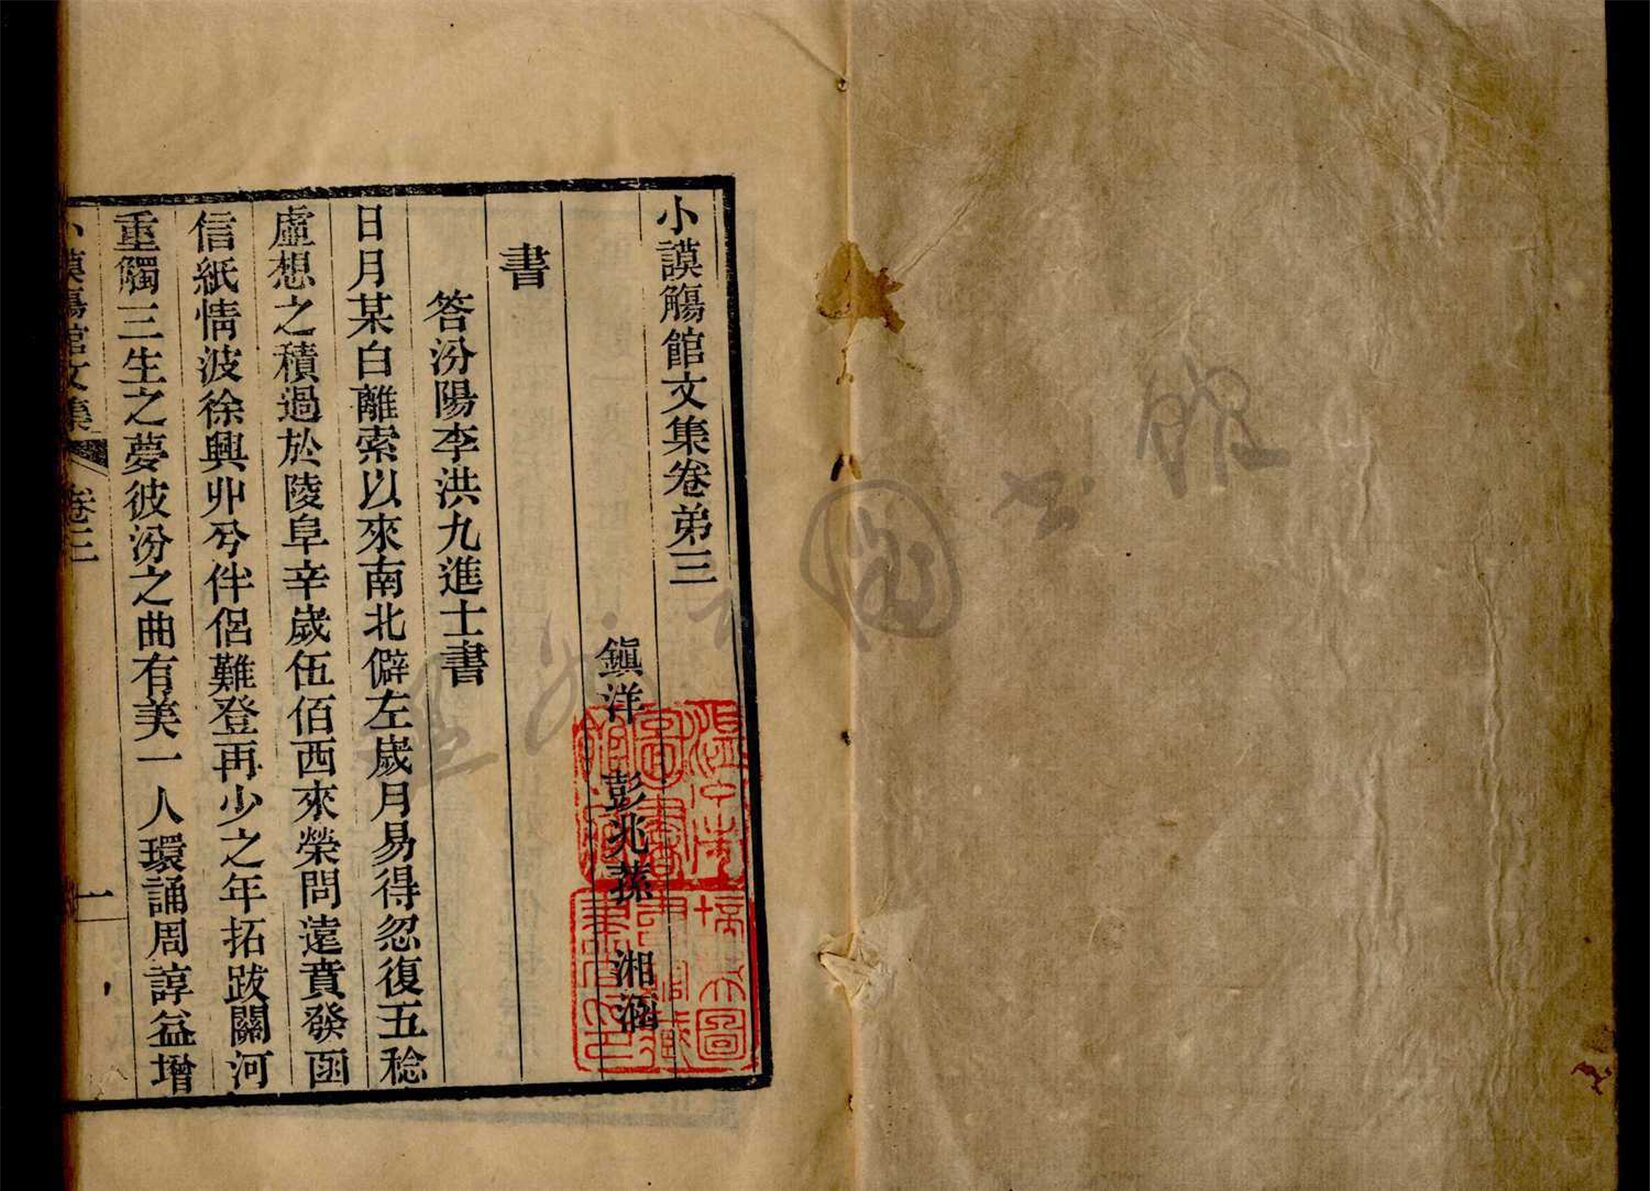 小謨觴館文集卷弟三
鎮洋 彭兆蓀 湘涵
書
答汾陽李洪九進士書
日月某白離索以來南北僻左歲月易得忽復五稔
虛想之積過於陵阜辛歲伍佰西來榮問遠賁發函
信紙情波徐興丱兮伴侶難登再少之年拓跋關河
重觸三生之夢彼汾之曲有美一人環誦周諄益增
小謨觴館文集 卷三 一